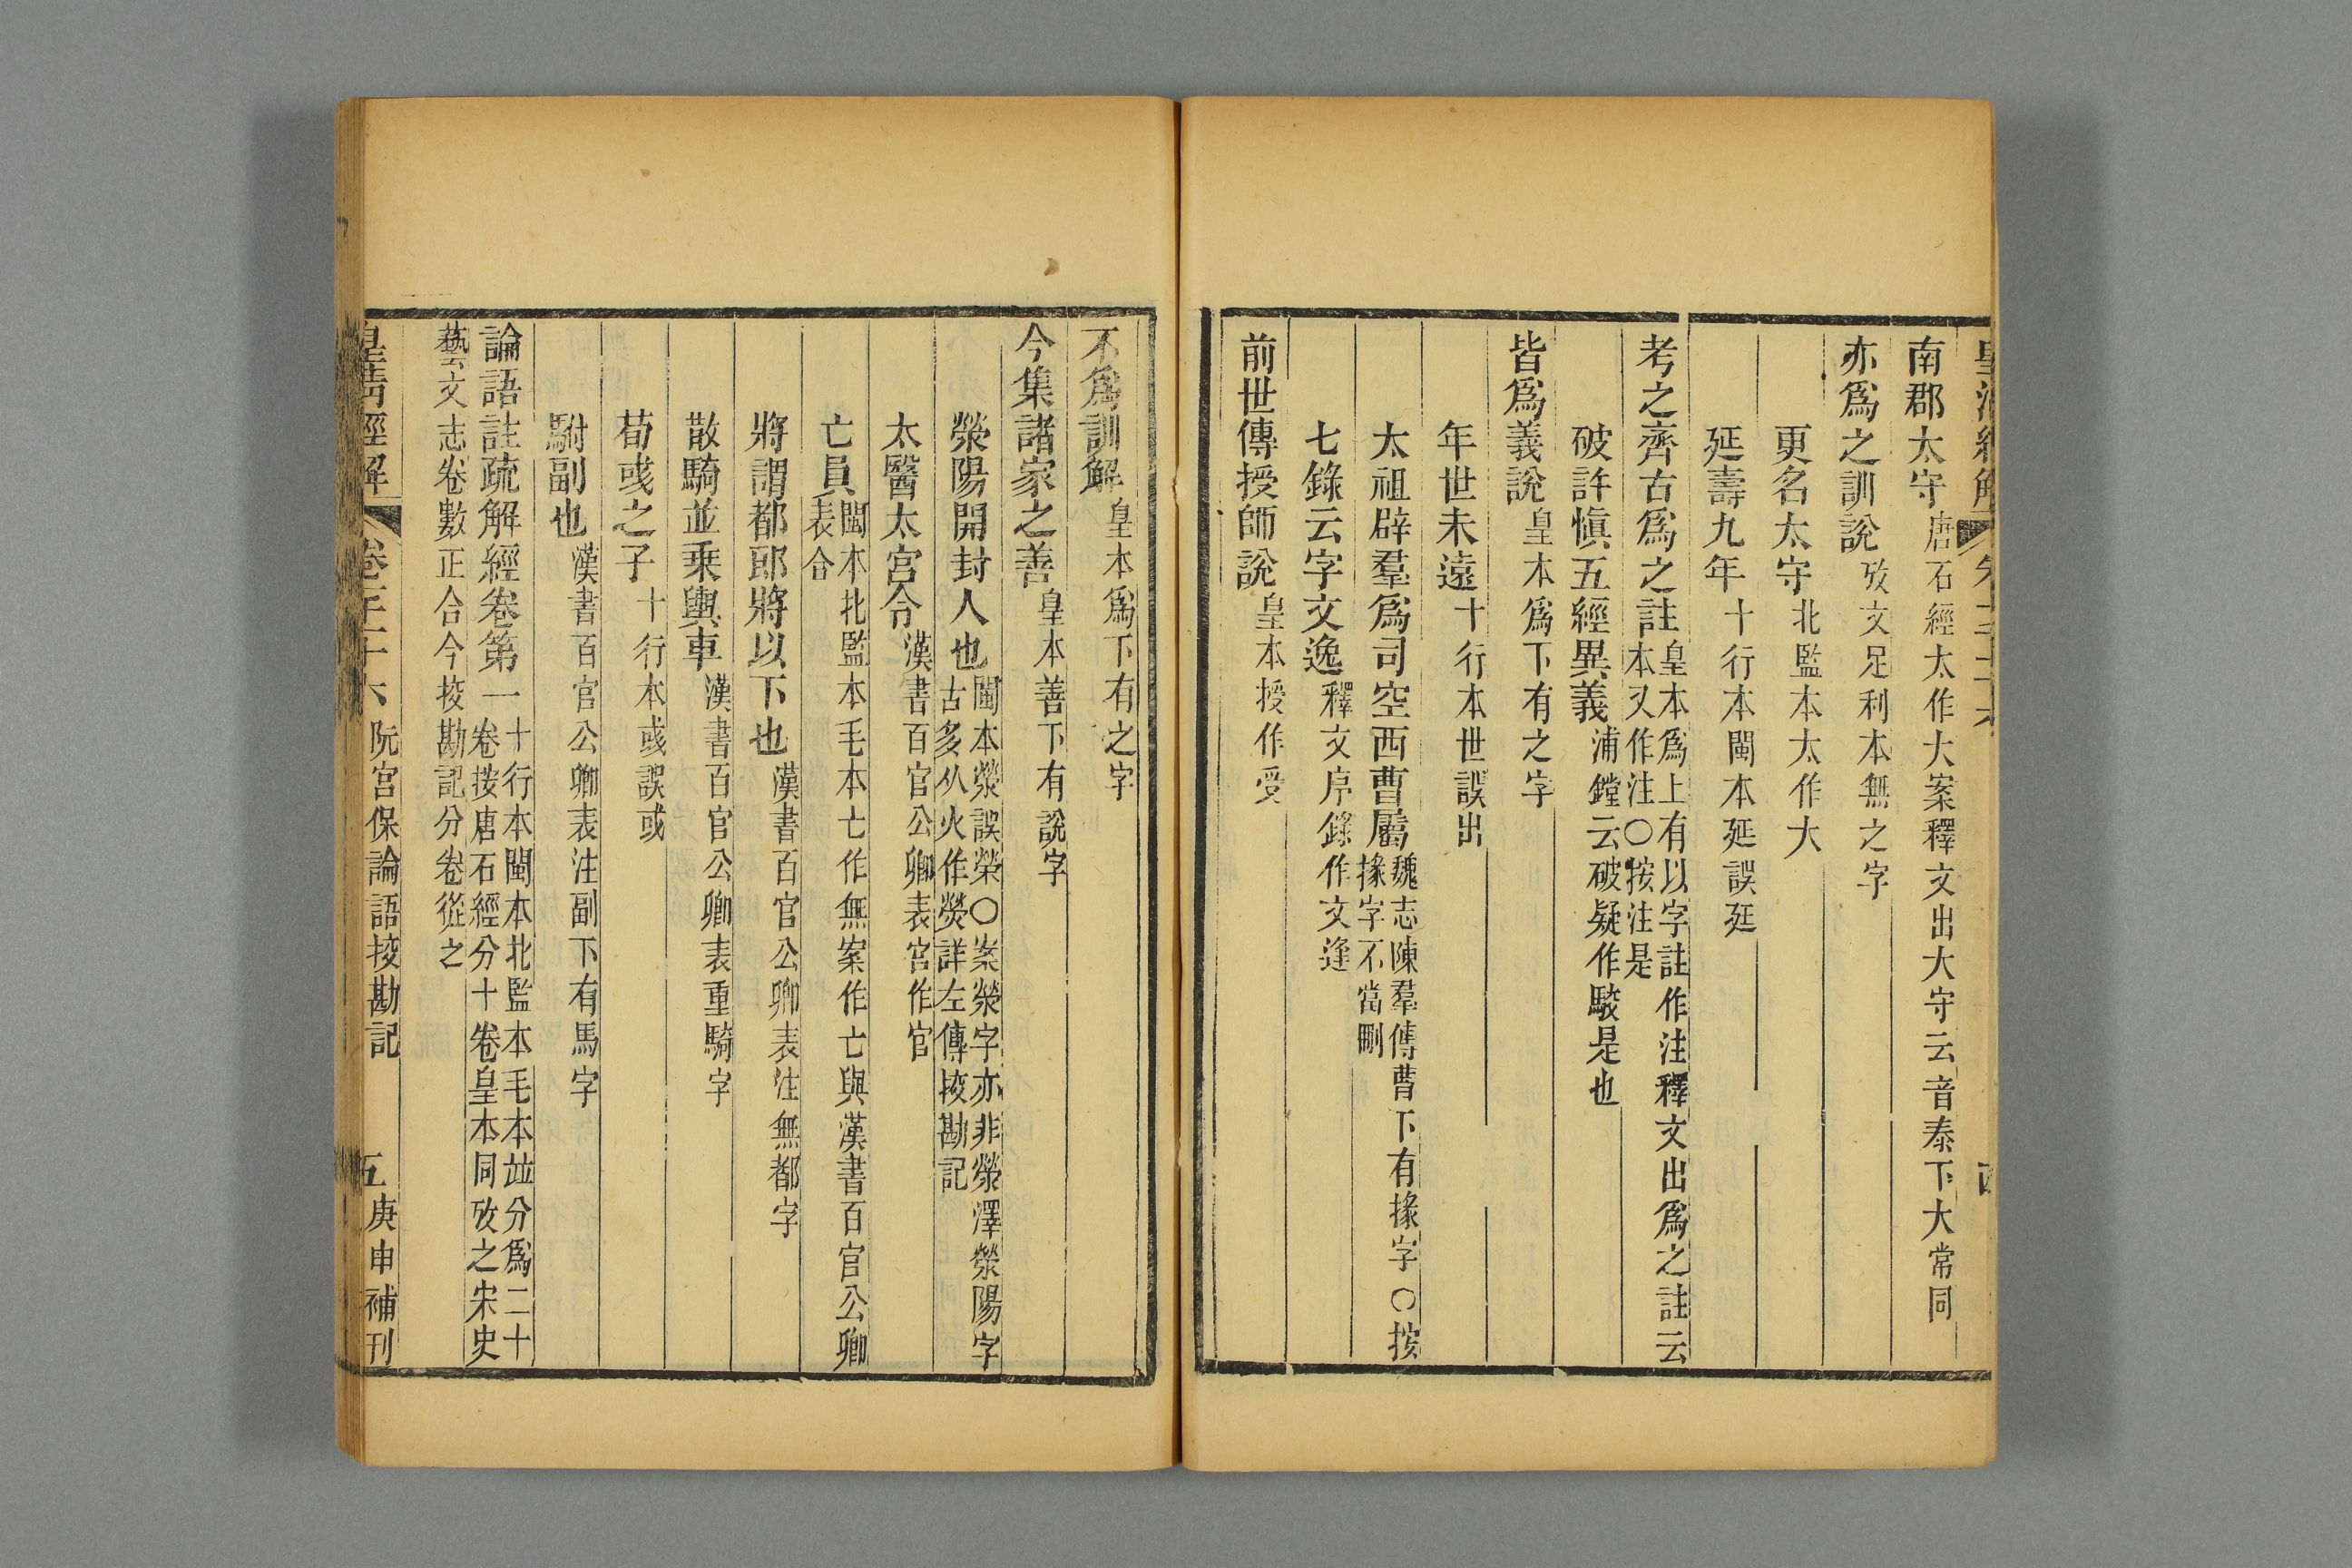 南郡太守唐石經太作大案釋文出大守云音泰下大常同
亦爲之訓說攷文足利本無之字
更名太守北監本太作大
延壽九年十行本閩本延誤延
考之齊古爲之註皇本爲上有以字註作注釋文出爲之註云
本又作注○按注是
破許愼五經異義浦鏜云破疑作駮是也
皆爲義說皇本爲下有之字
年世未遠十行本世誤出
太祖辟羣爲司空西曹屬魏志陳羣傳曹下有掾字○按
掾字不當刪
七錄云字文逸釋文序錄作文逢
前世傳授師說皇本授作受
不爲訓解皇本爲下有之字
今集諸家之善皇本善下有說字
滎陽開封人也閩本滎誤榮○案滎字亦非滎澤滎陽字
古多从火作熒詳左傳挍勘記
太醫太宮令漢書百官公卿表宮作官
亡員閩本北監本毛本亡作無案作亡與漢書百官公卿
表合
將謂都郎將以下也漢書百官公卿表注無都字
散騎並乗輿車漢書百官公卿表重騎字
荀彧之子十行本彧誤或
駙副也漢書百官公卿表注副下有馬字
論語註疏解經卷第一十行本閩本北監本毛本竝分爲二十
卷按唐石經分十卷皇本同攷之宋史
藝文志卷數正合今挍勘記分卷從之
皇清經解 卷 阮宮保論語挍勘記 五 庚申補刊